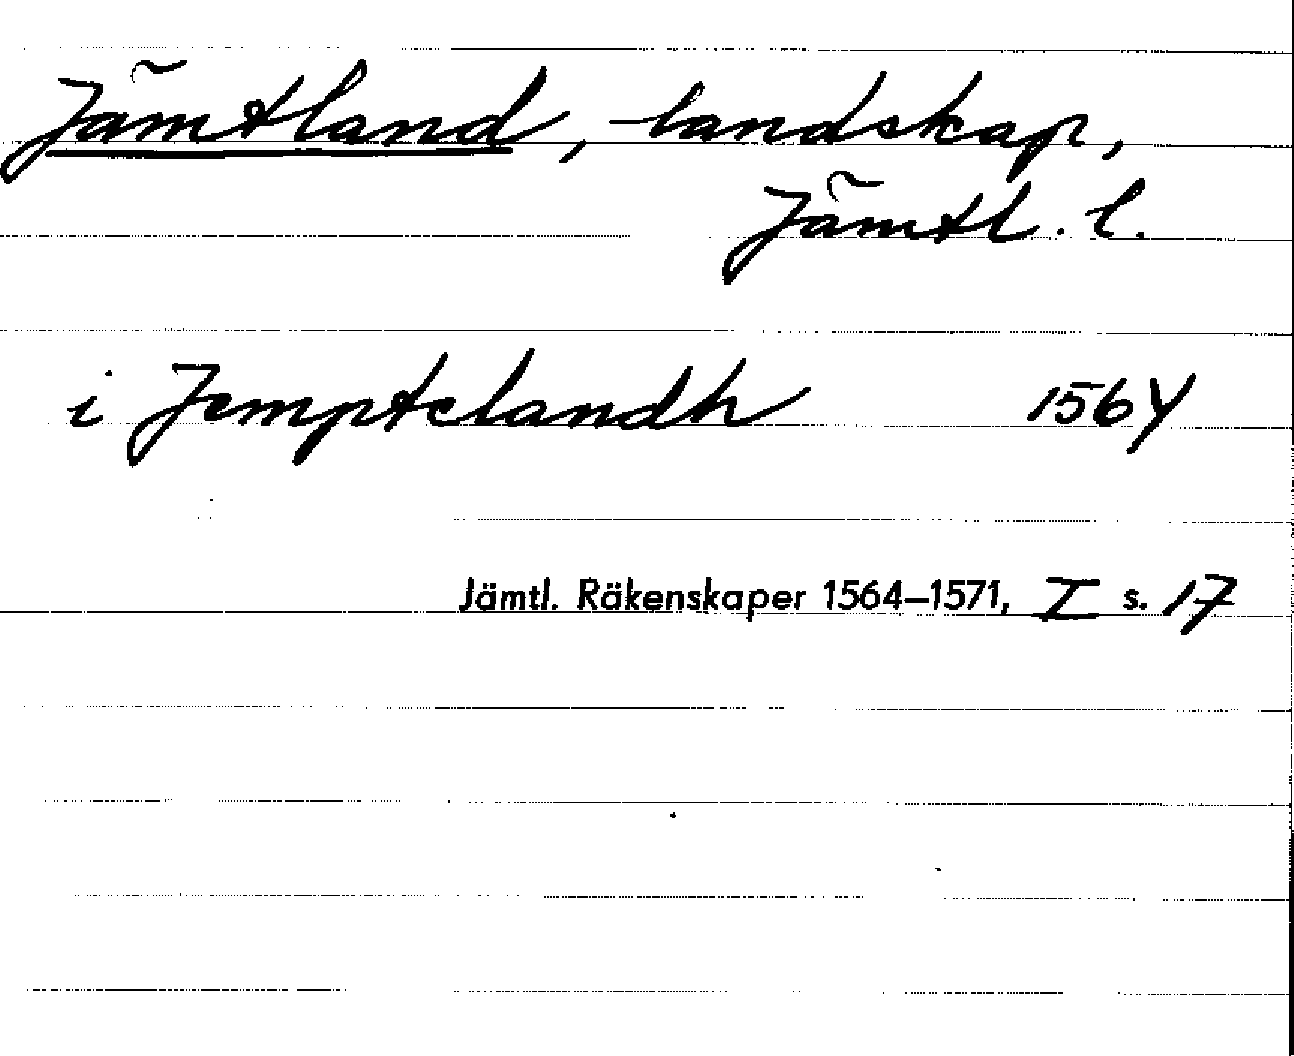 Jämtland, landskap,
Jämtl. l.
i Jemptelandh 1564
Jämtl. Räkenskaper 1564–1571, I s. 17